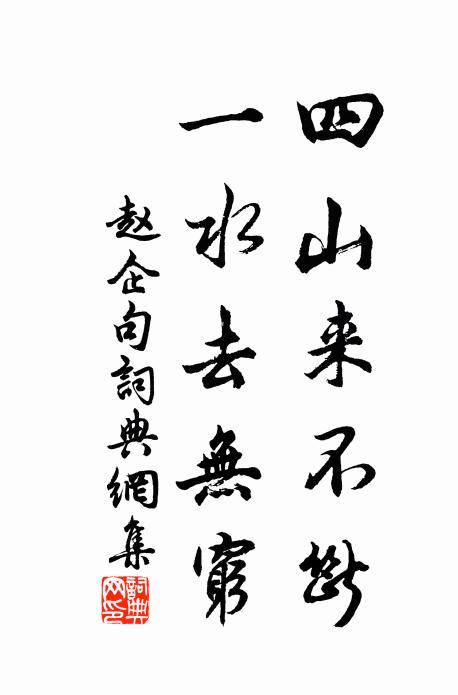 四山来不断
一水去無窮
赵企句詞典網集
詞典网印